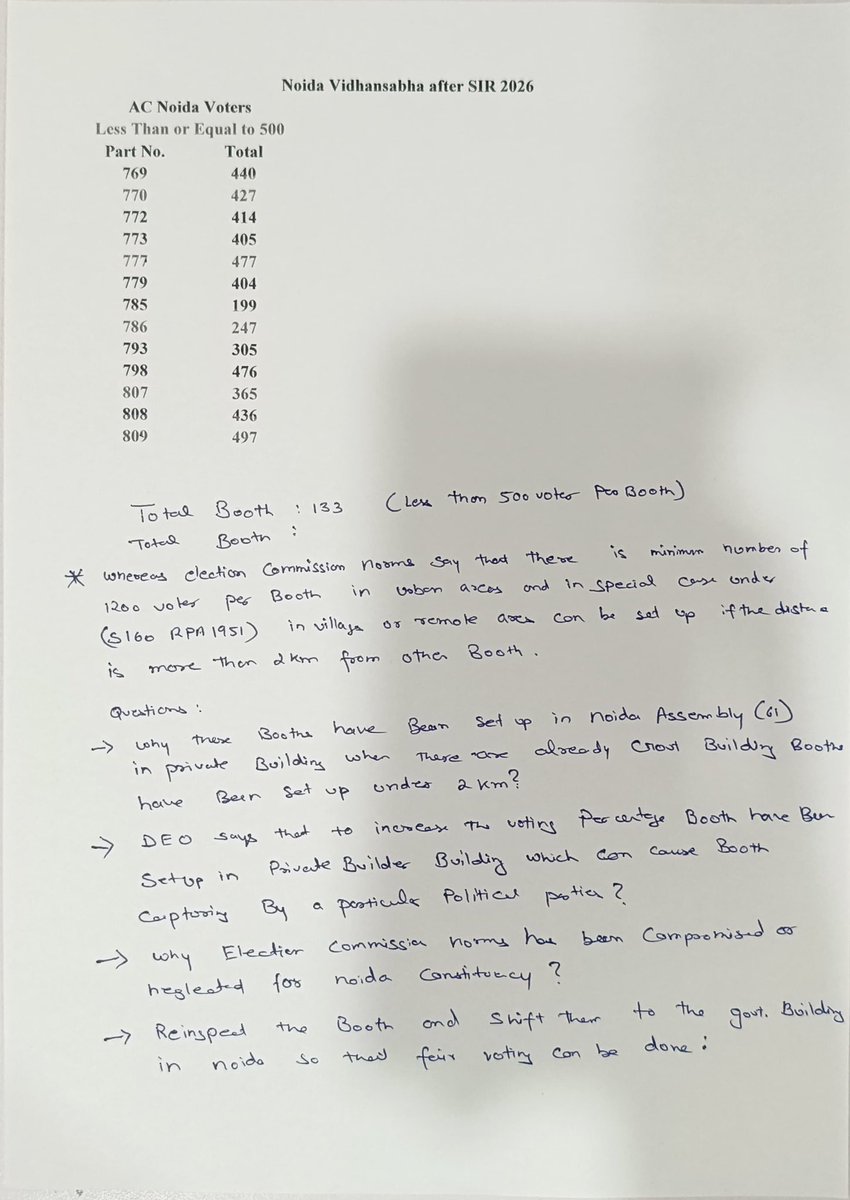 Noida Vidhansabha after SIR 2026
AC Noida Voters
Less Than or Equal to 500
Part No. Total
769 440
770 427
772 414
773 405
777 477
779 404
785 199
786 247
793 305
798 476
807 365
808 436
809 497
Total Booth : 133 (Less than 500 voter Per Booth)
Total Booth :
* whereas election Commission norms say that there is minimum number of
1200 voter per Booth in urban areas and in special case under
(S160 RPA 1951) in village or remote area can be set up if the
is more than 2 km from other Booth.
Questions :
→ why these Booths have Been set up in noida Assembly (61)
in private Building when there are already Govt Building Booths
have Been set up under 2 km?
→ DEO says that to increase the voting Percentage Booth have Ben
Setup in Private Builder Building which can cause Booth
Capturing By a particular Political ?
→ why Election Commission norms has been Compromised or
neglected for noida Constituency ?
→ Reinspect the Booth and Shift them to the govt. Building
in noida so that fair voting can be done :